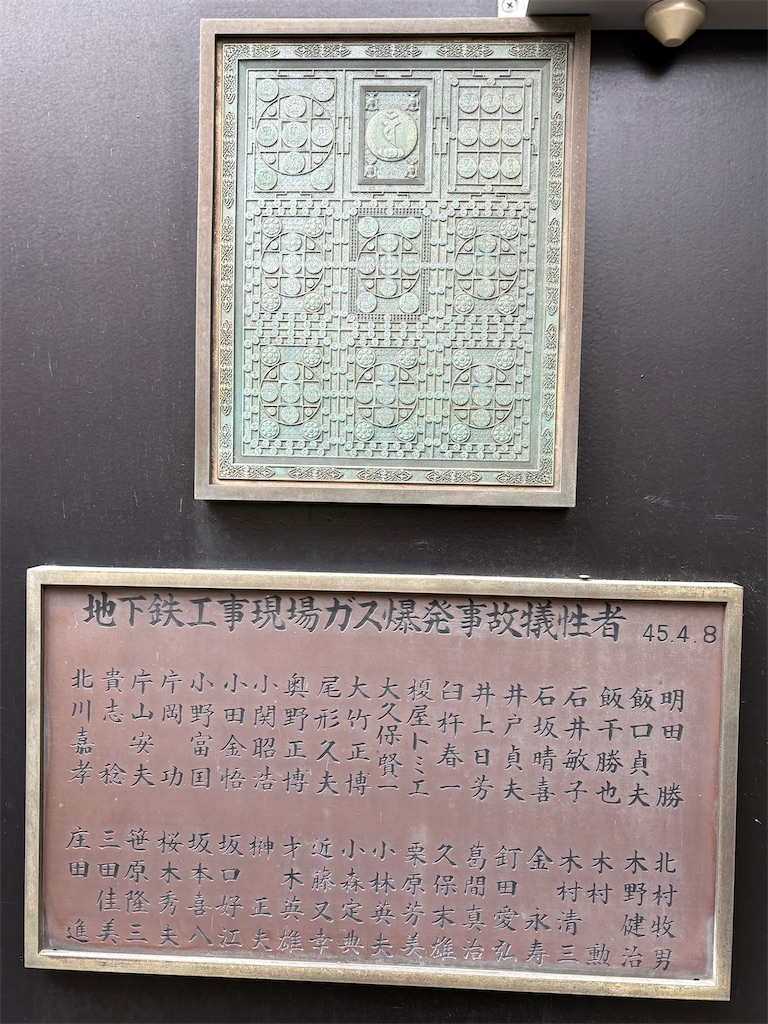 地下鉄工事現場ガス爆発事故犠牲者 45.4.8
明田勝
飯口貞夫
飯干勝也
石井敏子
石坂晴喜
井戸貞夫
井上日芳
臼杵春一
榎屋トミエ
大久保賢一
大竹正博
尾形久夫
奥野正博
小関昭浩
小田金悟
小野富国
片岡功
片山安夫
貴志稔
北川嘉孝
北村牧男
木野健治
木村勲
木村清三
金永寿
釘田愛弘
葛間真治
久保末雄
栗原芳美
小林英夫
小森定典
近藤又幸
才木英雄
榊正夫
坂口好江
坂本喜八
桜木秀夫
笹原隆三
三田佳美
庄田進